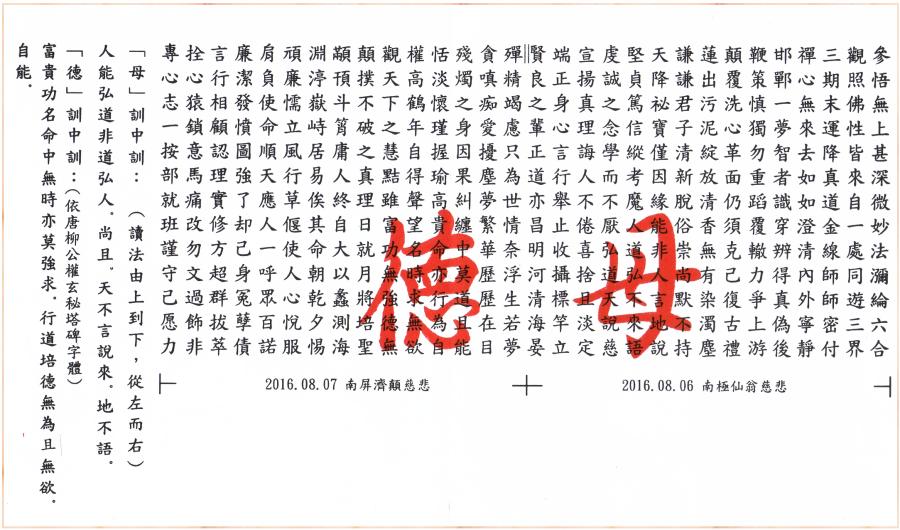 參悟無上甚深微妙法瀰綸六合
觀照佛性皆來自一處同遊三界
三期末運降真道金線師師密付
禪心無來去如如澄清內外寧靜
邯鄲一夢智者識穿辨得真偽後
鞭策慎獨勿重蹈覆轍力爭上游
顛覆洗心革面仍須克己復古禮
蓮出污泥綻放清香無有染濁塵
謙謙君子清新脫俗崇尚默不持
天降祕寶僅因緣能非人言地說
堅貞篤信縱考魔人道弘不來語
虔誠之念學而不厭弘道天說慈
宣揚真理誨人不倦喜捨且淡定
端正身心言行舉止收攝標竿立
賢良之輩正道亦昌明河清海晏
母
2016.08.06 南極仙翁慈悲
殫精竭慮只為世情奈浮生若夢
貪嗔痴愛擾塵夢繁華歷歷在目
殘燭之身因果糾纏中莫道且能
恬淡懷瑾握瑜高貴命亦行為自
權高鶴年自得聲望名時求無欲
觀天下之慧點雖富功無強德無
顛撲不破之真理日就月將培聖
顢頇斗筲庸人終自大以蠡測海
淵渟嶽峙居易俟其命朝乾夕惕
頑廉懦立風行草偃使人心悅服
肩負使命順天應人一呼眾百諾
廉潔發憤圖強了卻己身冤孽債
言行相顧認理實修方超群拔萃
拴心猿鎖意馬痛改勿文過飾非
專心志一按部就班謹守己愿力
德
2016.08.07 南屏濟顛慈悲
「母」訓中訓：（讀法由上到下，從左而右）
人能弘道非道弘人。尚且。天不言說來。地不語。
「德」訓中訓：（依唐柳公權玄秘塔碑字體）
富貴功名命中無時亦莫強求。行道培德無為且無欲。
自能。